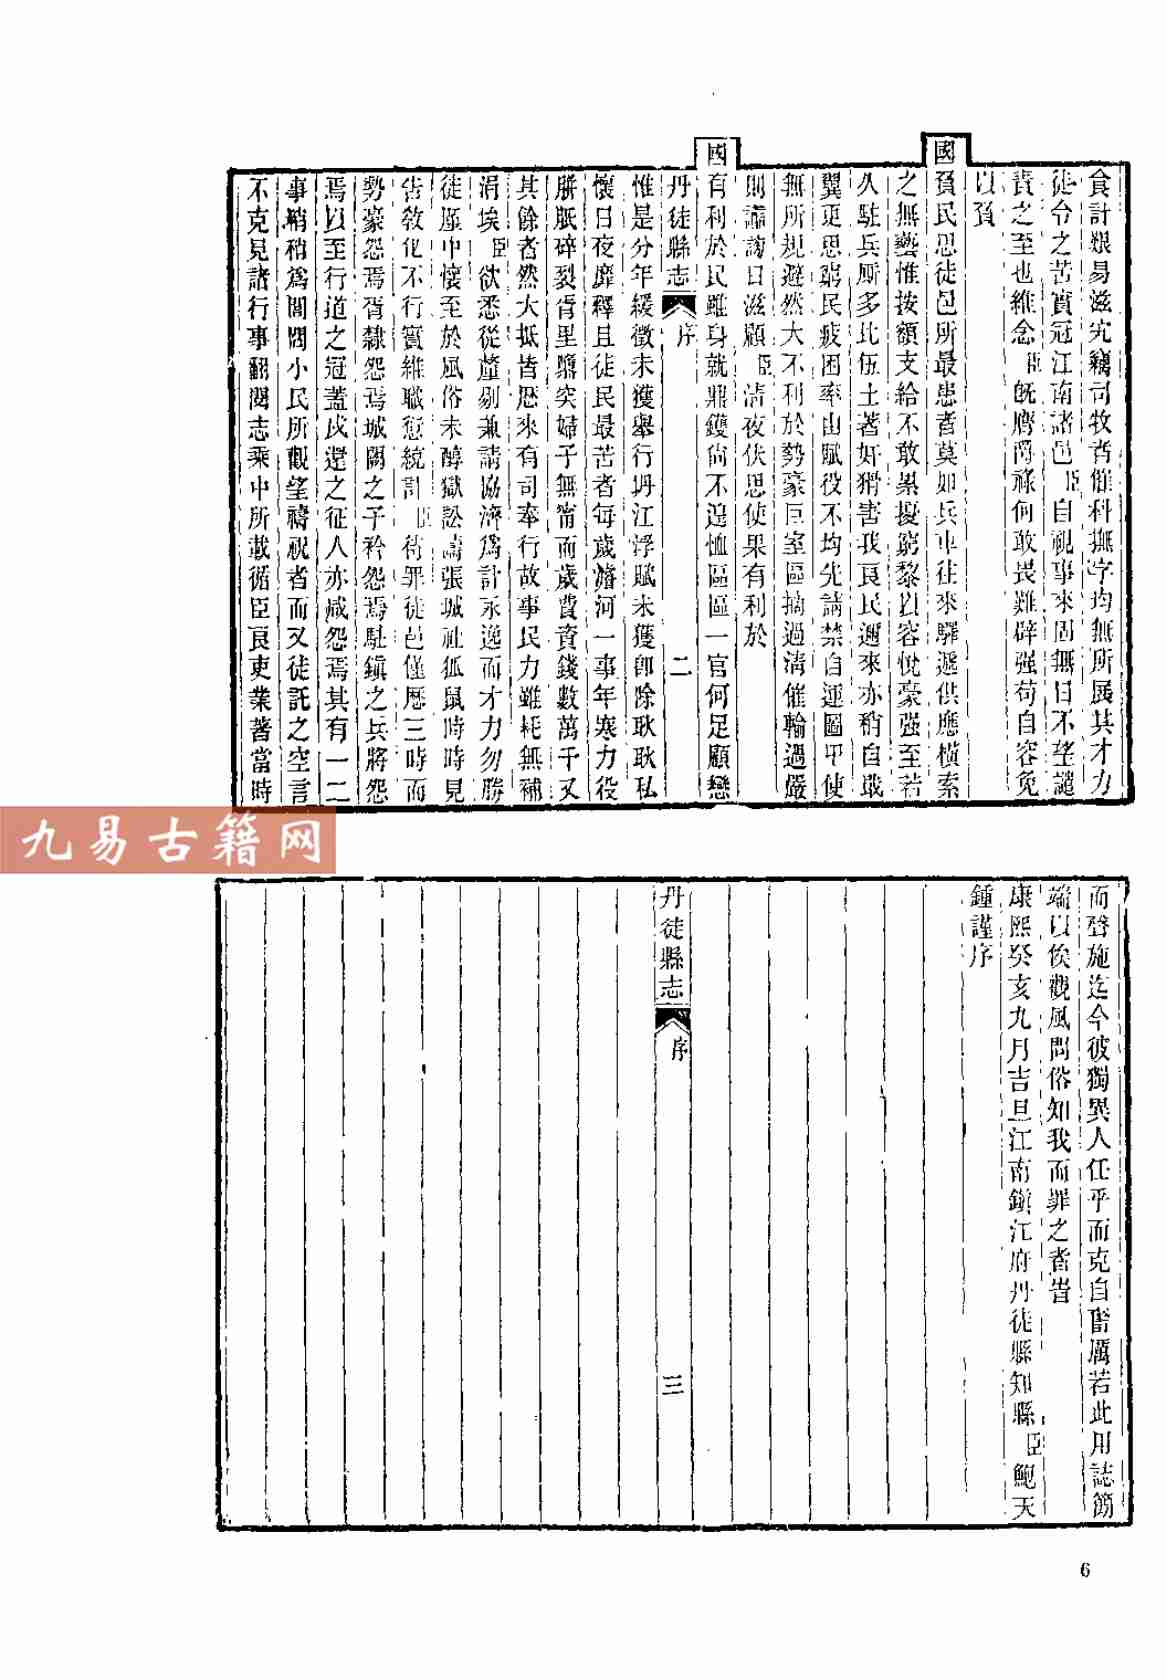 食計艱易滋宄竊司牧者催科撫字均無所展其才力
徒令之苦實冠江南諸邑臣自視事來固無日不望譴
責之至也維念臣既膺爵祿何敢畏難辟强苟自容免
以負
國負民思徒邑所最患者莫如兵車往來驛遞供應橫索
之無藝惟按額支給不敢累擾窮黎以容悅豪强至若
久駐兵厮多比伍土著奸猾害我良民邇來亦稍自戢
翼更思窮民疲困率由賦役不均先請禁自運圖甲使
無所規避然大不利於勢豪巨室區摘過清催輸過嚴
則謗議日滋顧臣清夜伏思使果有利於
國有利於民雖身就鼎鑊尚不遑恤區區一官何足顧戀
丹徒縣志 序 二
惟是分年緩徵未獲舉行坍江浮賦未獲卽除耿耿私
懷日夜靡釋且徒民最苦者每歲濬河一事年寒力役
胼胝碎裂胥里隳突婦子無甯而歲費資錢數萬千又
其餘者然大抵皆歷來有司奉行故事民力雖耗無補
涓埃臣欲悉從釐剔兼請協濟爲計永逸而才力勿勝
徒塵中懷至於風俗未醇獄訟譸張城社狐鼠時時見
告敎化不行實維職愆統計臣待罪徒邑僅歷三時而
勢豪怨焉胥隸怨焉城闕之子衿怨焉駐鎮之兵將怨
焉以至行道之冠蓋戍還之征人亦咸怨焉其有一二
事稍稍爲閭閻小民所觀望禱祝者而又徒託之空言
不克見諸行事翻閱志乘中所載循臣良吏業著當時
而聲施迄今彼獨異人任乎而克自奮厲若此用誌簡
端以俟觀風問俗知我而罪之者旹
康熙癸亥九月吉旦江南鎭江府丹徒縣知縣臣鮑天
鍾謹序
丹徒縣志 序 三
6
九易古籍网